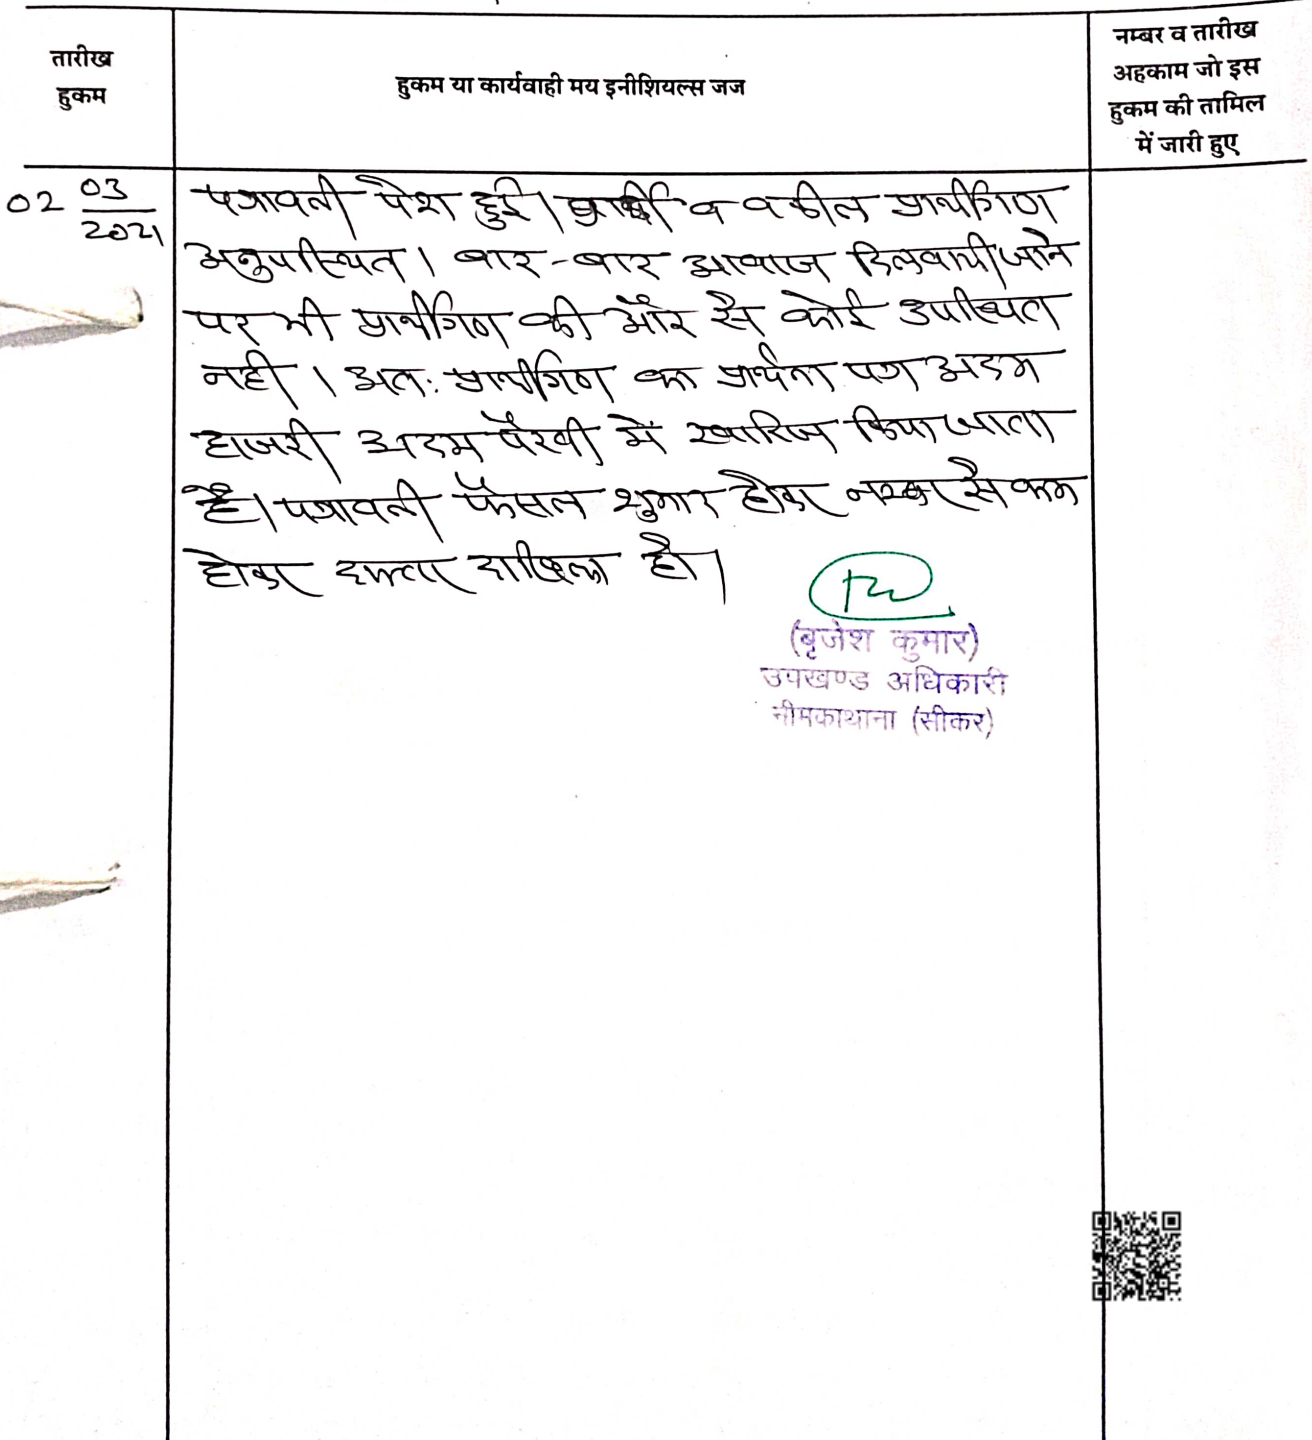 तारीख
हुकम
हुकम या कार्यवाही मय इनीशियल्स जज
नम्बर व तारीख
अहकाम जो इस
हुकम की तामिल
में जारी हुए
02 03/2021
पत्रावली पेश हुई। प्रार्थी व वकील प्रार्थीगण
अनुपस्थित। बार-बार आवाज दिलवायी जाने
पर भी प्रार्थीगण की और से कोई उपस्थित
नही। अतः प्रार्थीगण का प्रार्थना पत्र अदम
हाजरी अदम पैरवी में खारिज किया जाता
है। पत्रावली फैसल शुमार होकर नम्बर से कम
होकर दफ्तर दाखिल हो।
(बृजेश कुमार)
उपखण्ड अधिकारी
नीमकाथाना (सीकर)